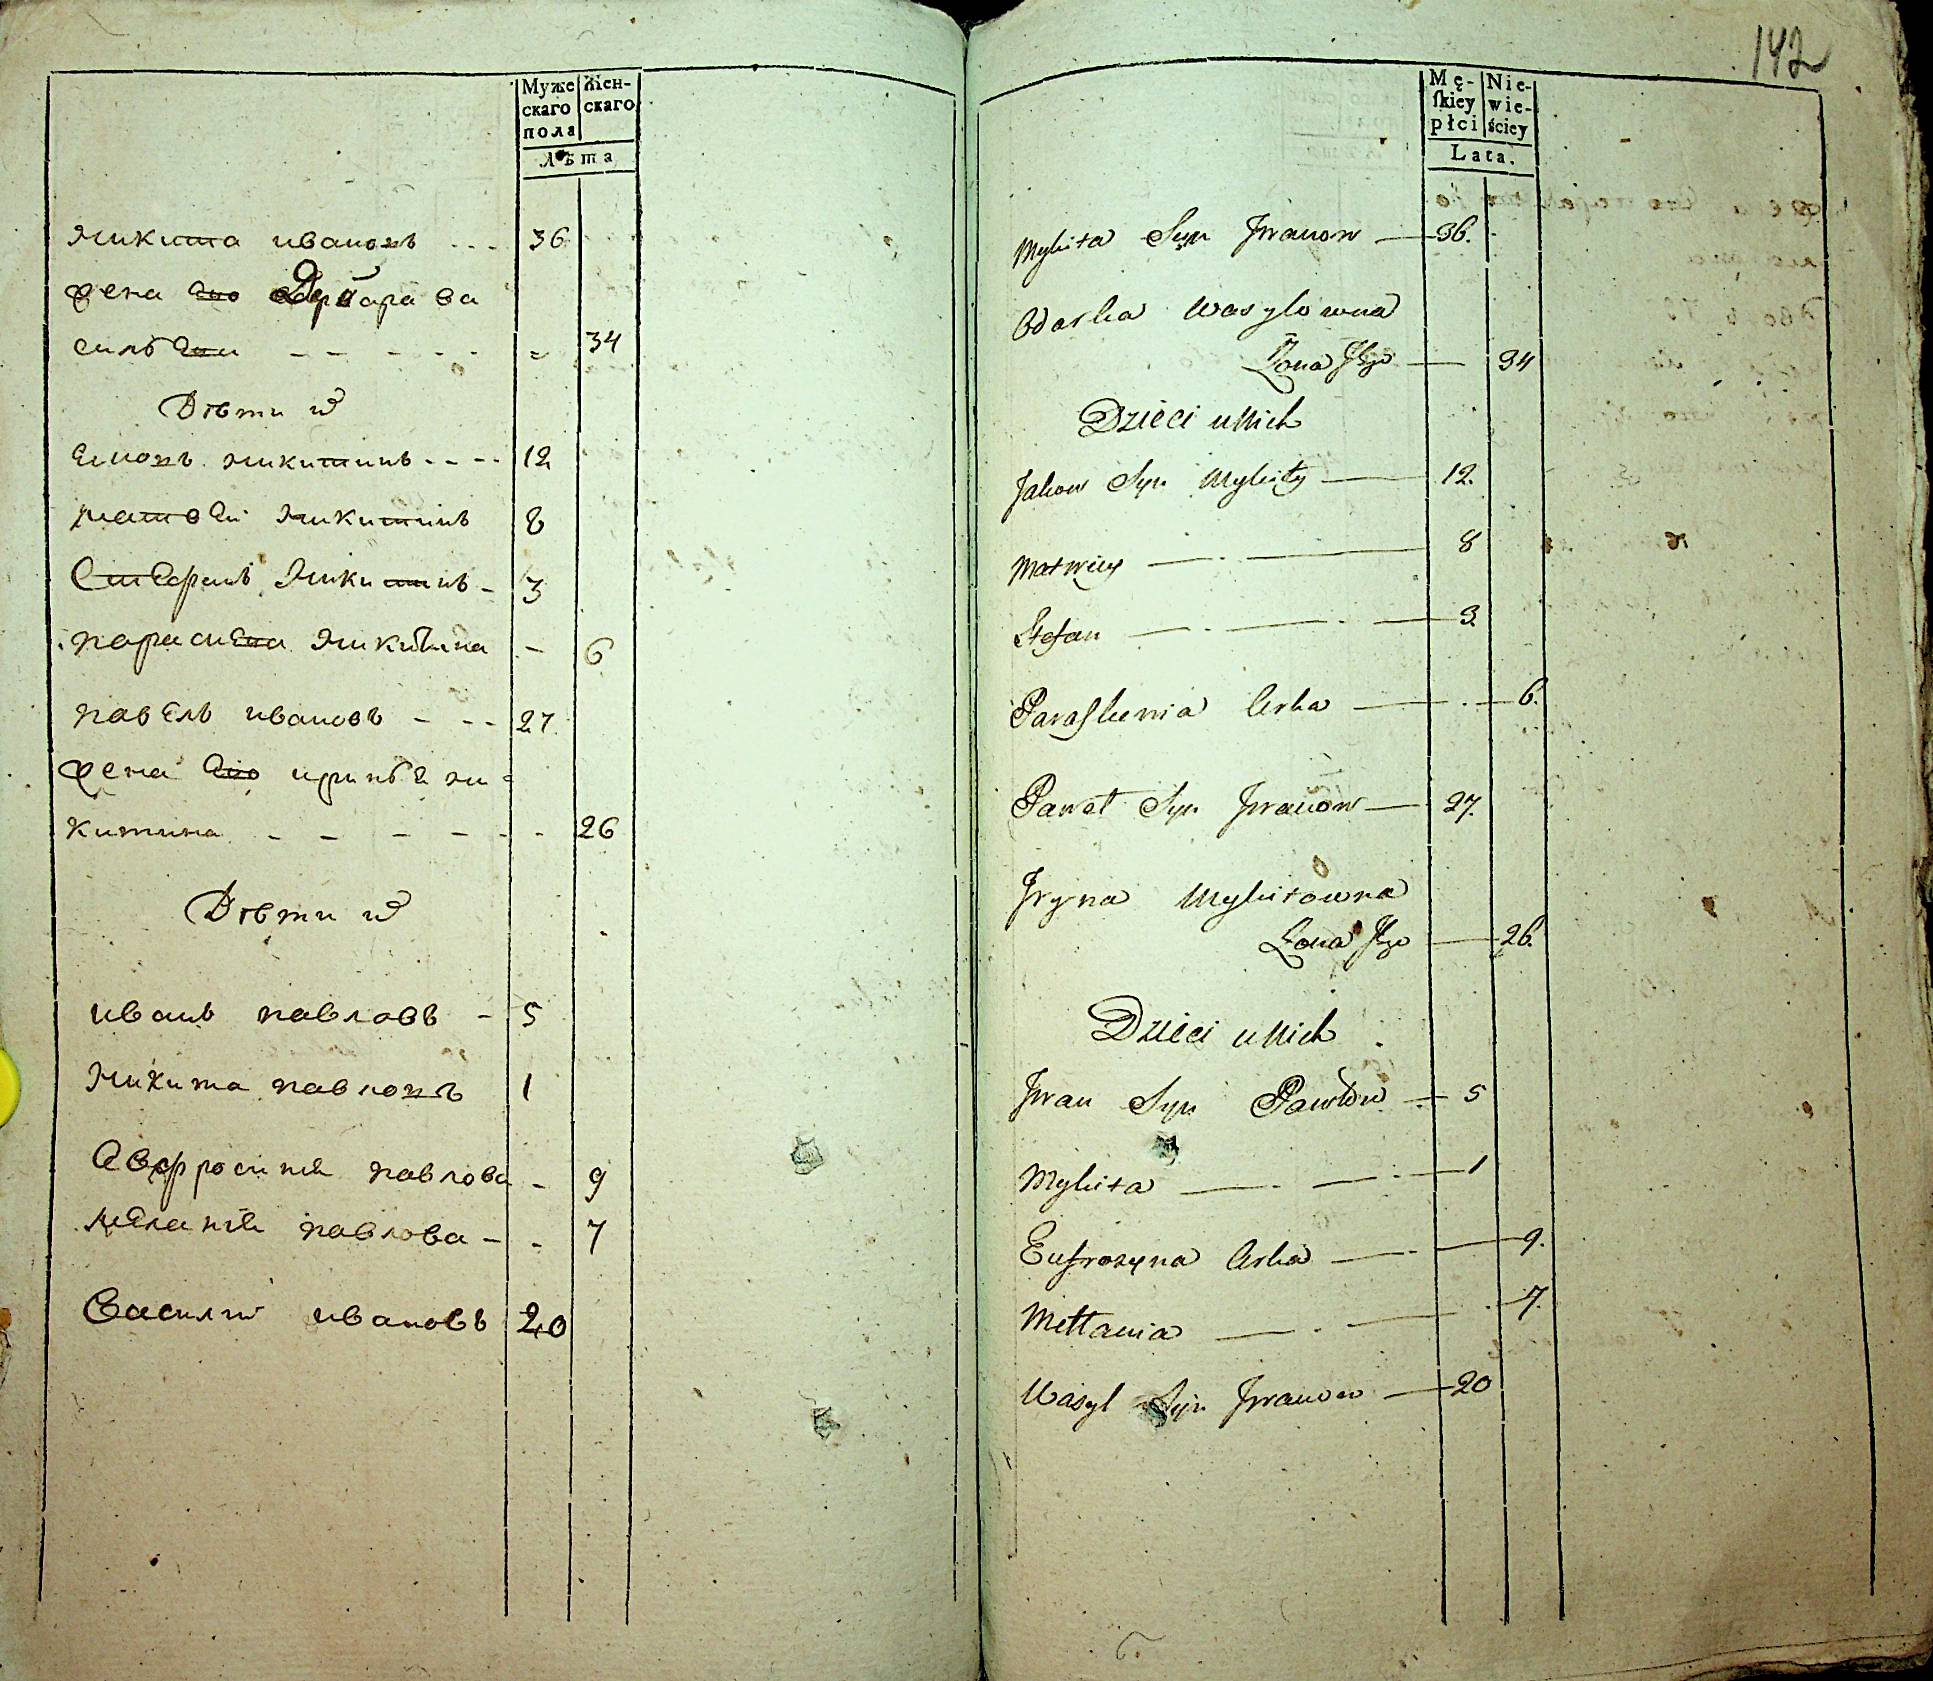 Муже
скаго
пола
Жен-
скаго
лѣта
микита ивановъ - - - 36
жена Его Дарья ва
сильева - - - - - = 34
Дѣти их
микитинъ - - - - 12
матвеи микитинъ 8
Стефанъ микитинъ - 3
парасиева микитина - 6
павелъ ивановъ - - - 27
жена Его ирина ми=
китина - - - - - - 26
Дѣти их
иванъ павловъ - 5
микита павловъ 1
Авфросиниа павлова - 9
меланиа павлова - - 7
Василий ивановъ 20
142
Mę-
skiey
płci
Nie-
wie-
ściey
Lata.
Mykita Syn Jwanow — 36.
Odarka Wasylowna
Żona Jego — 34
Dzieci u Nich
Jakow Syn Mykity — 12.
Matwiey — . — 8
Stefan — . — . — 3.
Paraskiewia Crka — . — 6.
Paweł Syn Jwanow — 27.
Jryna Mykitowna
Żona Jego — 26.
Dzieci u Nich
Jwan Syn Pawłow — 5
Mykita — . — . — 1
Eufrozyna Crka — . — 9.
Mełłania — . — . — 7.
Wasyl Syn Jwanow — 20